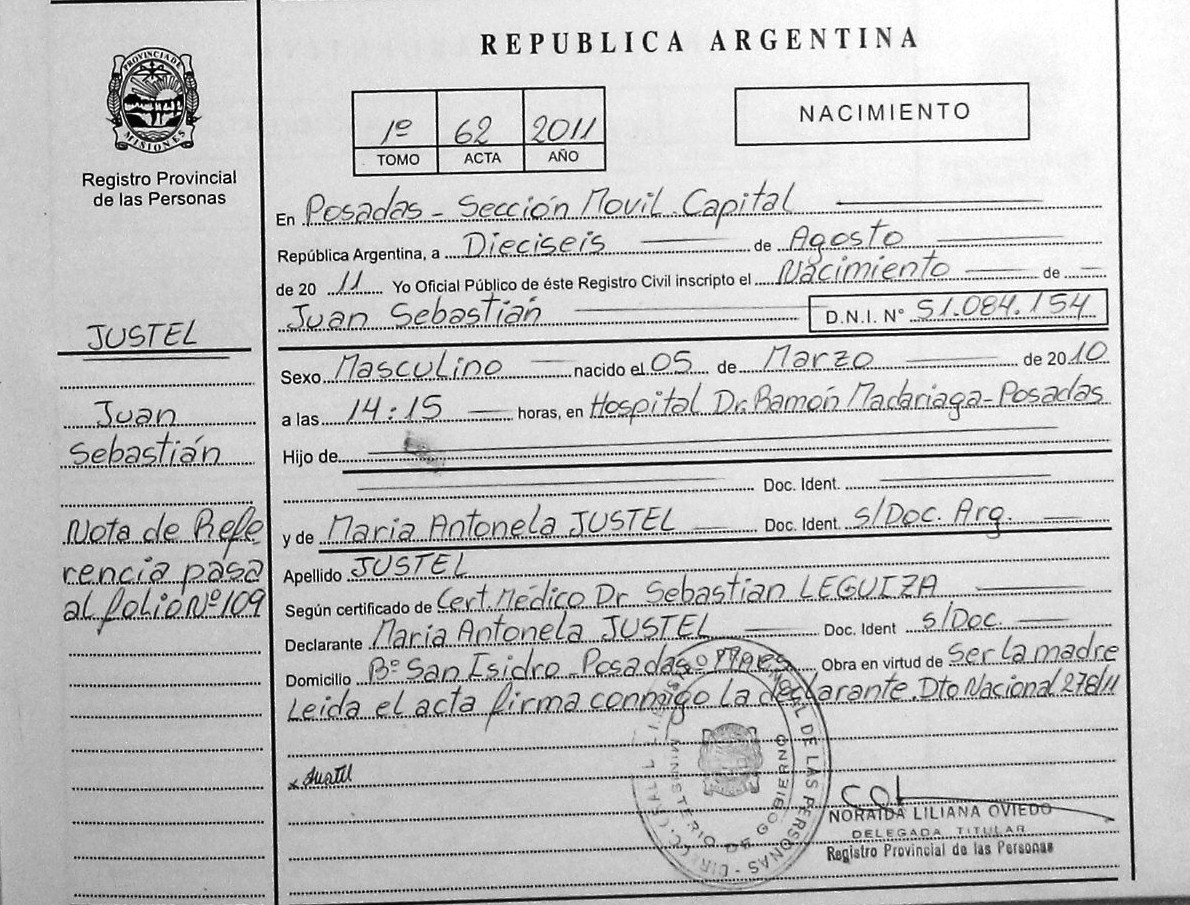 REPUBLICA ARGENTINA
PROVINCIA DE MISIONES
Registro Provincial
de las Personas
1º 62 2011
TOMO ACTA AÑO
NACIMIENTO
En Posadas - Sección Movil Capital
República Argentina, a Dieciseis de Agosto
de 20 11 Yo Oficial Público de éste Registro Civil inscripto el Nacimiento de
Juan Sebastián D.N.I. N° 51.084.154
Sexo Masculino nacido el 05 de Marzo de 2010
a las 14:15 horas, en Hospital Dr. Ramón Madariaga - Posadas
Hijo de
Doc. Ident.
y de Maria Antonela JUSTEL Doc. Ident. s/Doc. Arg.
Apellido JUSTEL
Según certificado de Cert. Médico Dr Sebastian LEGUIZA
Declarante Maria Antonela JUSTEL Doc. Ident s/Doc.
Domicilio Bº San Isidro - Posadas Obra en virtud de Ser la madre
Leida el acta firma conmigo la declarante. Dto Nacional 278/11
JUSTEL
Juan
Sebastián
Nota de Refe
rencia pasa
al folio Nº 109
x Justel
DE LAS PERSONAS
MINISTERIO DE GOBIERNO
NORAIDA LILIANA OVIEDO
DELEGADA TITULAR
Registro Provincial de las Personas